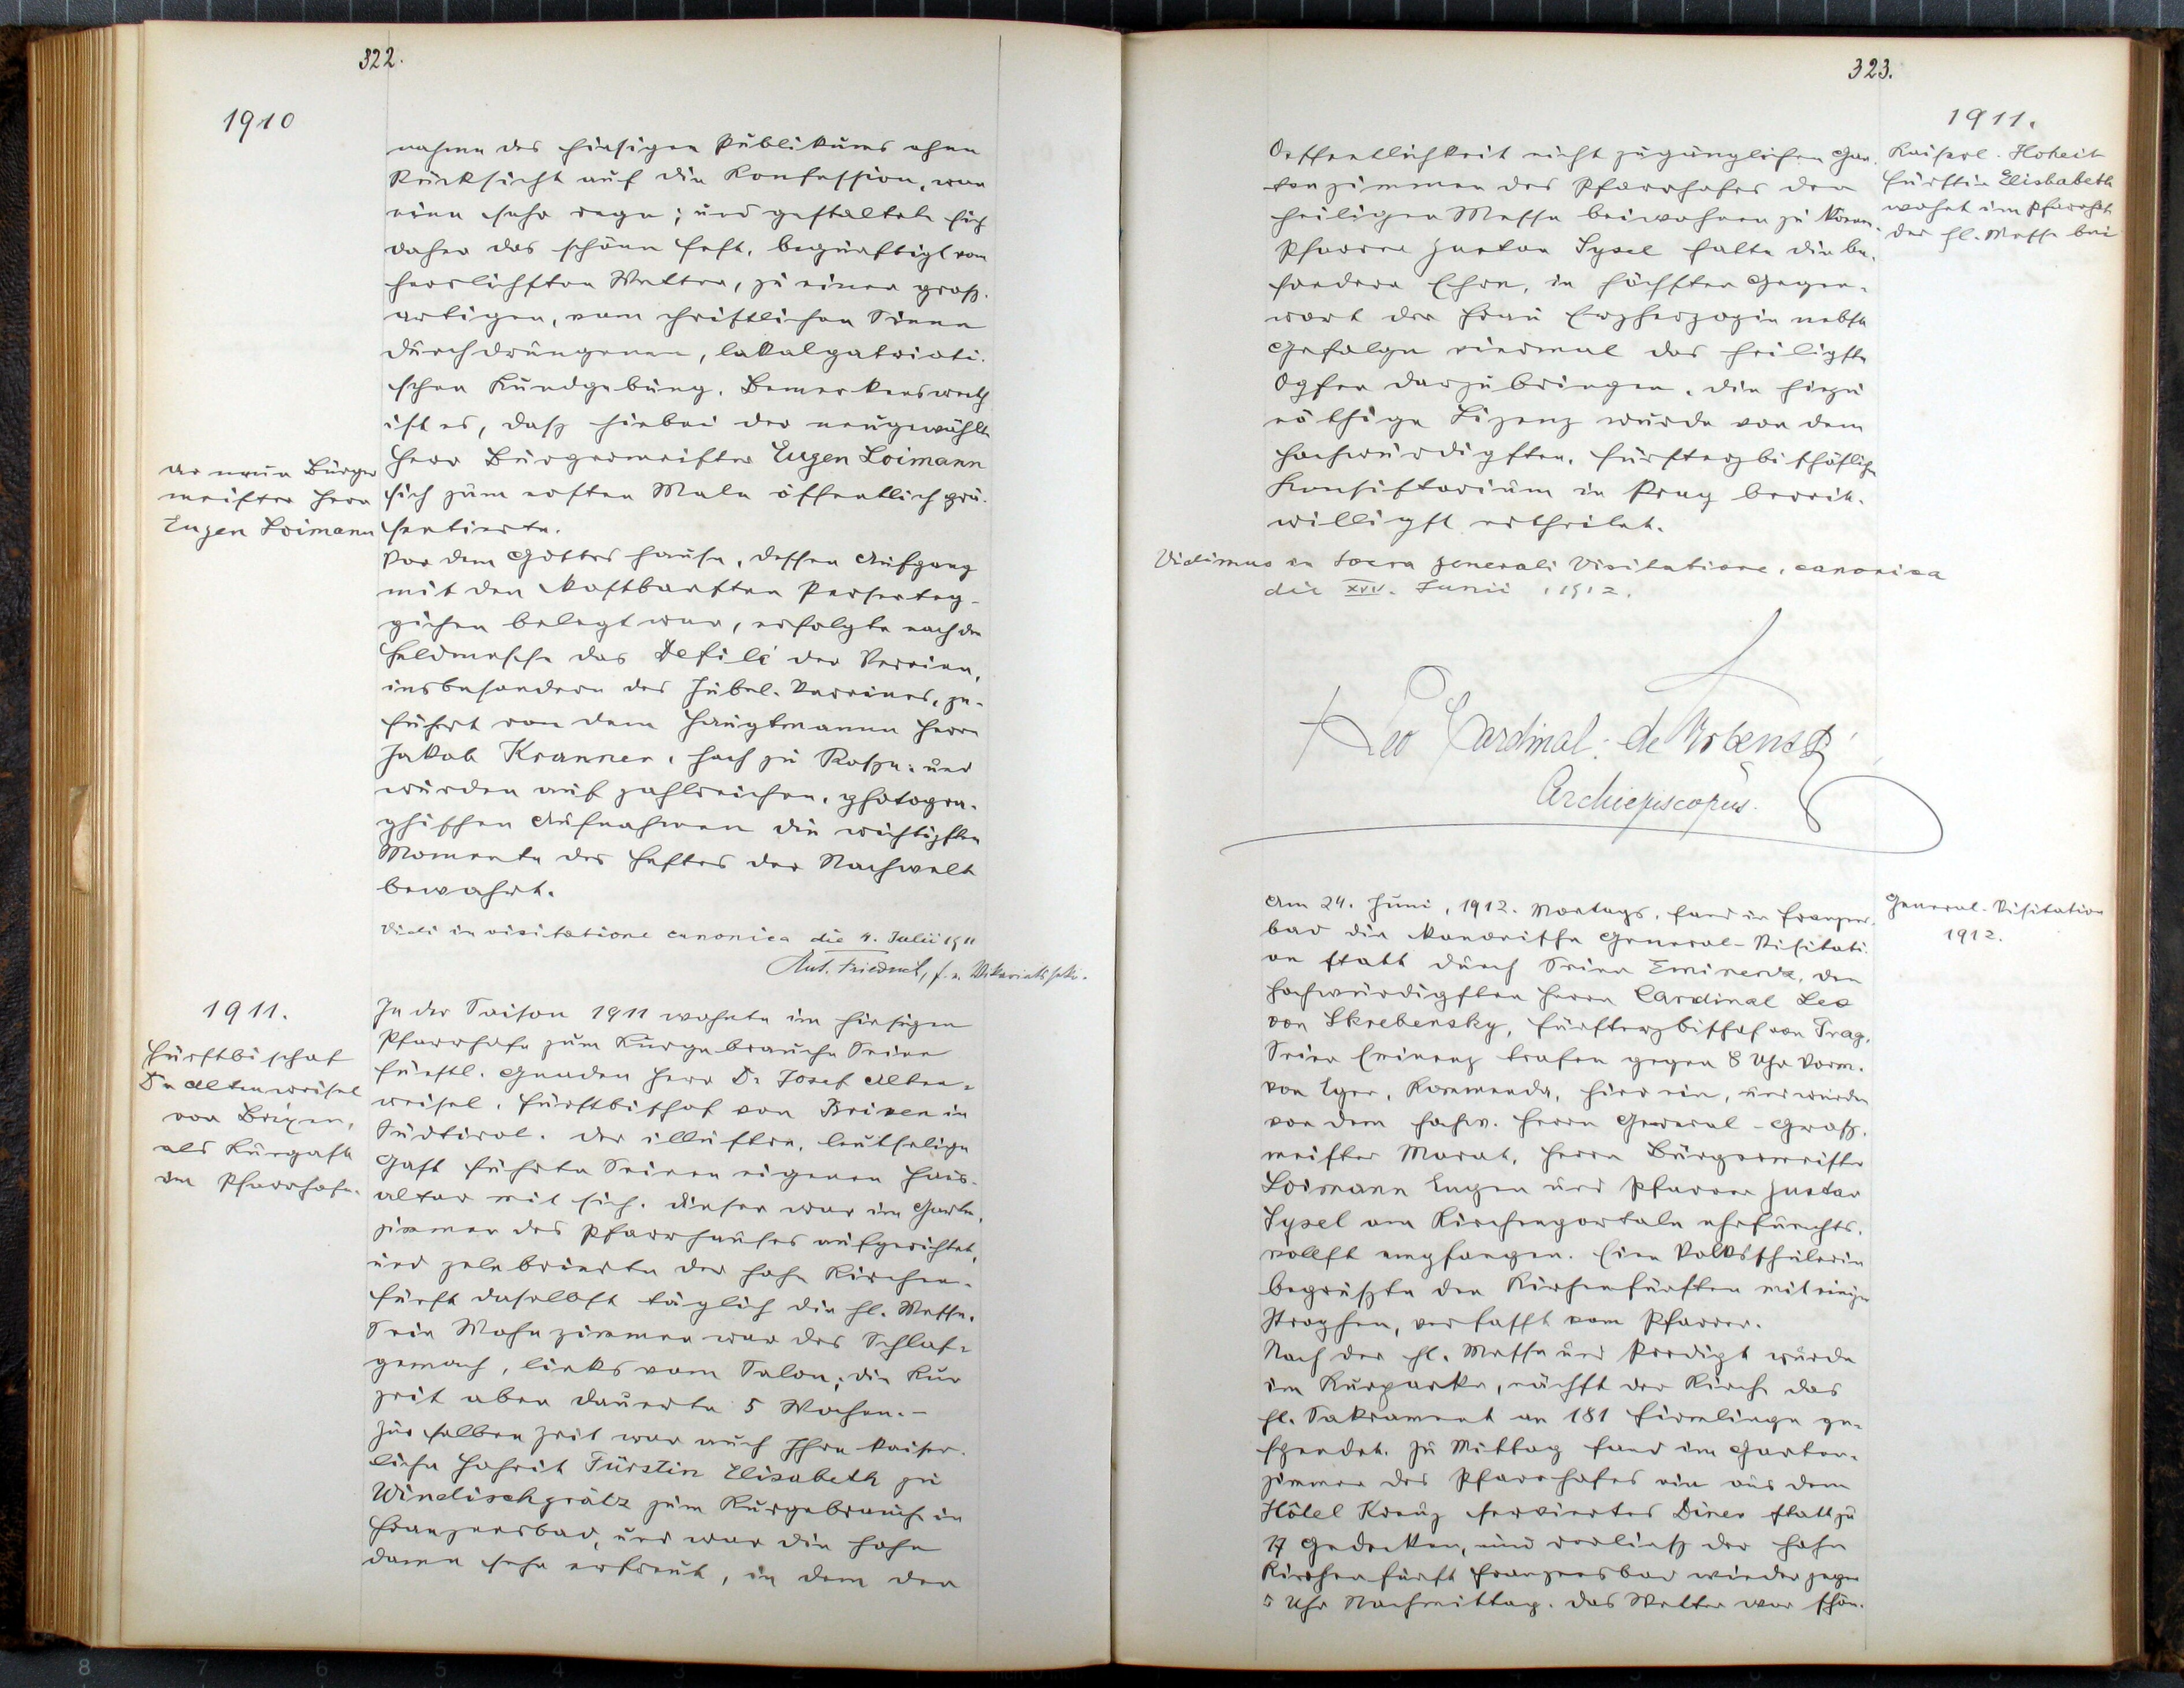 322.
1910
nahme des hiesigen Publikums ohne
Rücksicht auf die Konfession, war
eine sehr rege; und gestaltete sich
daher das schöne Fest, begünstigt vom
herrlichsten Wetter, zu einer groß-
artigen, vom christlichen Sinne
durchdrungenen, lokalpatrioti-
schen Kundgebung. Bemerkenswerth
ist es, daß hiebei der neugewählte
Herr Bürgermeister Eugen Loimann
sich zum ersten Male öffentlich prä-
sentierte.
der neue Bürger
meister Herr
Eugen Loimann
Vor dem Gotteshause, dessen Aufgang
mit den kostbarsten Persertep-
pichen belegt war, erfolgte nach der
Feldmesse das Defilé der Vereine,
insbesondere des Jubel-Vereines, ge-
führt von dem Hauptmanne Herrn
Jakob Kranner, hoch zu Roße; und
wurden auf zahlreichen, photogra-
phischen Aufnahmen die wichtigsten
Momente des Festes der Nachwelt
bewahrt.
Vidi in visitatione canonica die 4. Julii 1911
Ant. Friedrich, f. e. Vikariatssekr.
1911.
Fürstbischof
Dr Altenweisel
von Brixen,
als Kurgast
im Pfarrhofe.
In der Saison 1911 wohnte im hiesigen
Pfarrhofe zum Kurgebrauche Seine
fürstl. Gnaden Herr Dr Josef Alten-
weisel, Fürstbischof von Brixen in
Südtirol. Der illustre, leutselige
Gast führte Seinen eigenen Haus-
altar mit sich. Dieser war im Garten-
zimmer des Pfarrhauses aufgerichtet,
und zelebrierte der hohe Kirchen-
fürst daselbst täglich die hl. Messe.
Sein Wohnzimmer war das Schlaf-
gemach, links vom Salon; die Kur
zeit aber dauerte 5 Wochen. -
Zur selben Zeit war auch Ihre kaiser-
liche Hoheit Fürstin Elisabeth zu
Windischgrätz zum Kurgebrauch in
Franzensbad, und war die hohe
Dame sehr erfreut, in dem der
323.
1911.
Kaiserl. Hoheit
Fürstin Elishabeth
wohnt im Pfarrhofe
der hl. Messe bei
Oeffentlichkeit nicht zugänglichen Gar-
tenzimmer des Pfarrhofes der
heiligen Messe beiwohnen zu können.
Pfarrer Gustav Sysel hatte die be-
sondere Ehre, in höchster Gegen-
wart der Frau Erzherzogin nebst
Gefolge viermal das heiligste
Opfer darzubringen. Die hiezu
nöthige Lizenz wurde von dem
hochwürdigsten, fürsterzbischöflichen
Konsistorium in Prag bereit-
willigst ertheilet.
Vidimus in sacra generali Visitatione, canonica
die XXIV. Junii, 1912.
† Leo Cardinal: de Skrbensky
Archiepiscopus.
General-Visitation
1912.
Am 24. Juni, 1912. Montags, fand in Franzens-
bad die kanonische General-Visitati-
on statt durch Seine Eminenz, den
hochwürdigsten Herrn Cardinal Leo
von Skrebensky, Fürsterzbischof von Prag.
Seine Eminenz trafen gegen 8 Uhr Vorm.
von Eger, Kommenda, hier ein, und wurden
von dem hochw. Herrn General-Groß-
meister Marat, Herrn Bürgermeister
Loimann Eugen und Pfarrer Gustav
Sysel am Kirchenportale ehrfurchts-
vollst empfangen. Eine Volksschülerin
begrüßte den Kirchenfürsten mit einigen
Strophen, verfasst vom Pfarrer.
Nach der hl. Messe und Predigt wurde
im Kurparke, nächst der Kirche das
hl. Sakrament an 181 Firmlinge ge-
spendet. Zu Mittag fand im Garten-
zimmer des Pfarrhofes ein aus dem
Hôtel Kreuz serviertes Diner statt zu
17 Gedecken, und verließ der hohe
Kirchenfürst Franzensbad wieder gegen
5 Uhr Nachmittag. Das Wetter war schön.